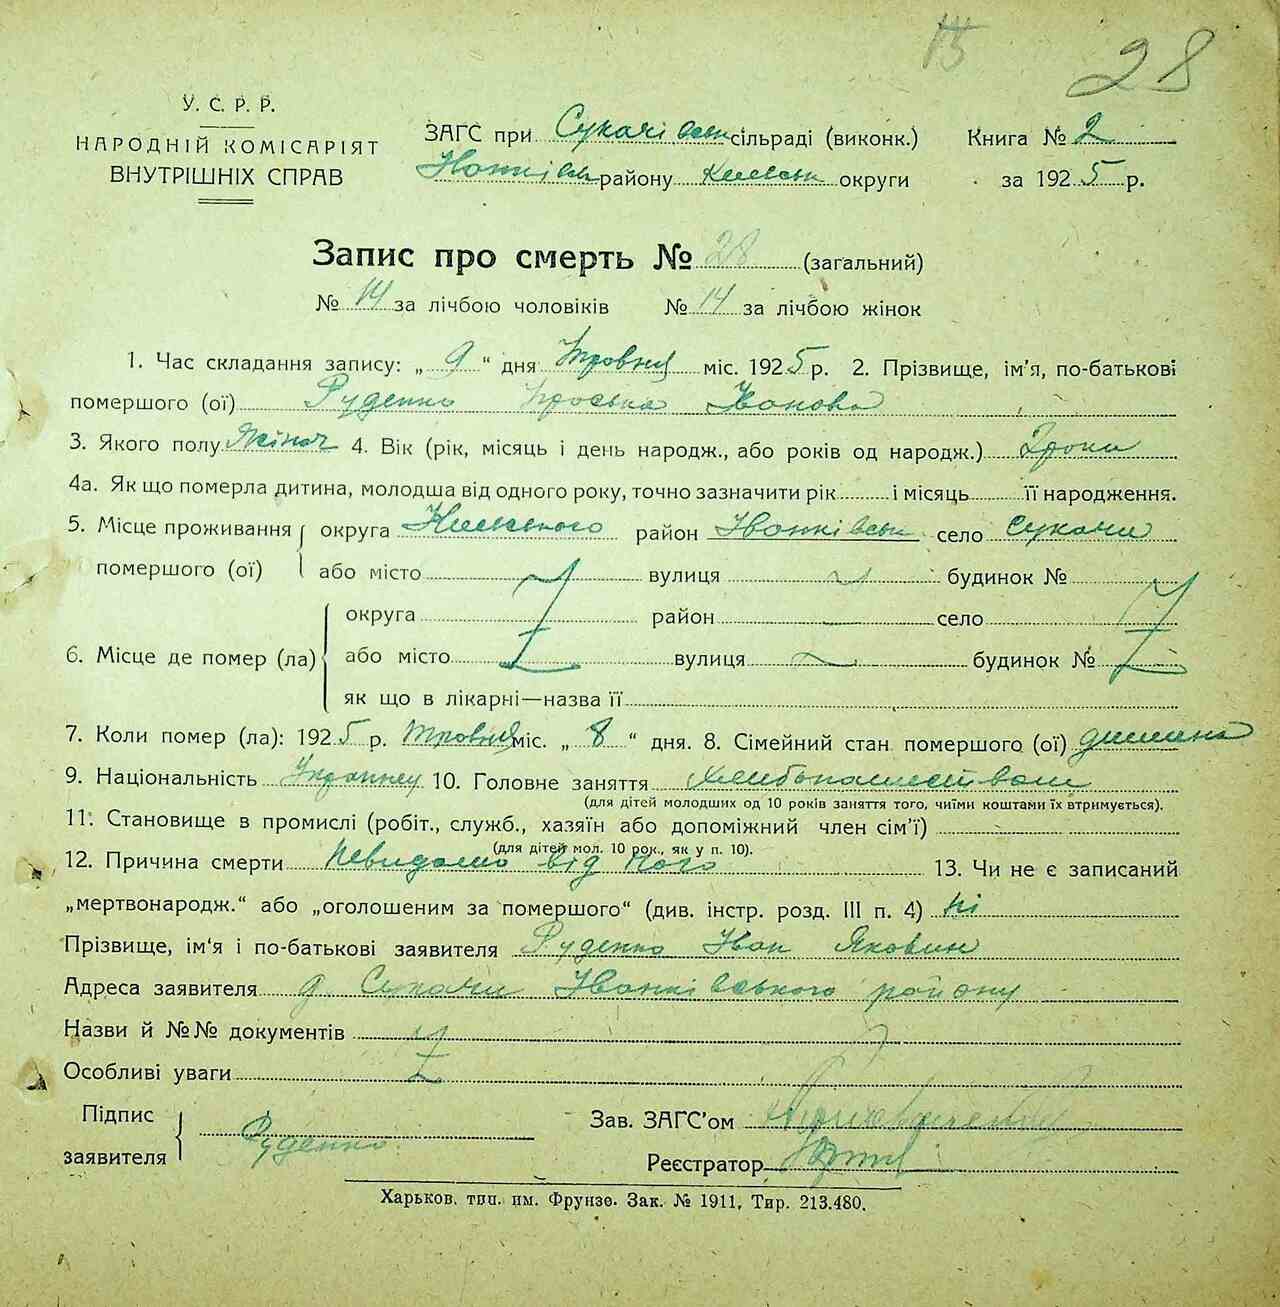 28
У. С. Р. Р.
НАРОДНІЙ КОМІСАРІЯТ
ВНУТРІШНІХ СПРАВ
ЗАГС при Сукачівськ сільраді (виконк.) Книга № 2
району округи за 1925 р.
Запис про смерть № 28 (загальний)
№ 14 за лічбою чоловіків № 14 за лічбою жінок
1. Час складання запису: „ 9 “ дня Травня міс. 1925 р. 2. Прізвище, ім'я, по-батькові
помершого (ої) Руденко Проська Іванова
3. Якого полу Жіноч 4. Вік (рік, місяць і день народж., або років од народж.) 2 роки
4а. Як що померла дитина, молодша від одного року, точно зазначити рік і місяць її народження.
5. Місце проживання округа Київського район Іванківськ село Сукачи
помершого (ої) або місто вулиця будинок №
округа район село
6. Місце де помер (ла) або місто вулиця будинок №
як що в лікарні—назва її
7. Коли помер (ла): 1925 р. Травня міс. „ 8 “ дня. 8. Сімейний стан помершого (ої) дитина
9. Національність 10. Головне заняття
(для дітей молодших од 10 років заняття того, чиїми коштами їх втримується).
11. Становище в промислі (робіт., служб., хазяїн або допоміжний член сім'ї)
(для дітей мол. 10 рок., як у п. 10).
12. Причина смерти Невидомо від чого 13. Чи не є записаний
„мертвонародж.“ або „оголошеним за помершого“ (див. інстр. розд. III п. 4) ні
Прізвище, ім'я і по-батькові заявителя Руденко Іван Яковин
Адреса заявителя с. Сукачи Іванківського району
Назви й №№ документів
Особливі уваги
Підпис
заявителя Руденко
Зав. ЗАГС'ом
Реєстратор
Харьков. тип. им. Фрунзе. Зак. № 1911, Тир. 213.480.